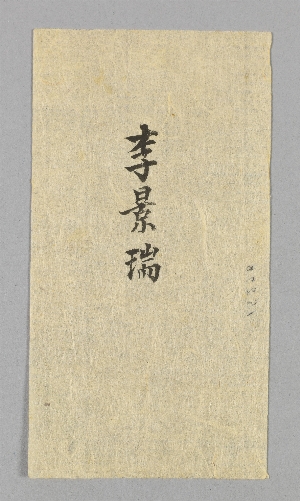 李景瑞